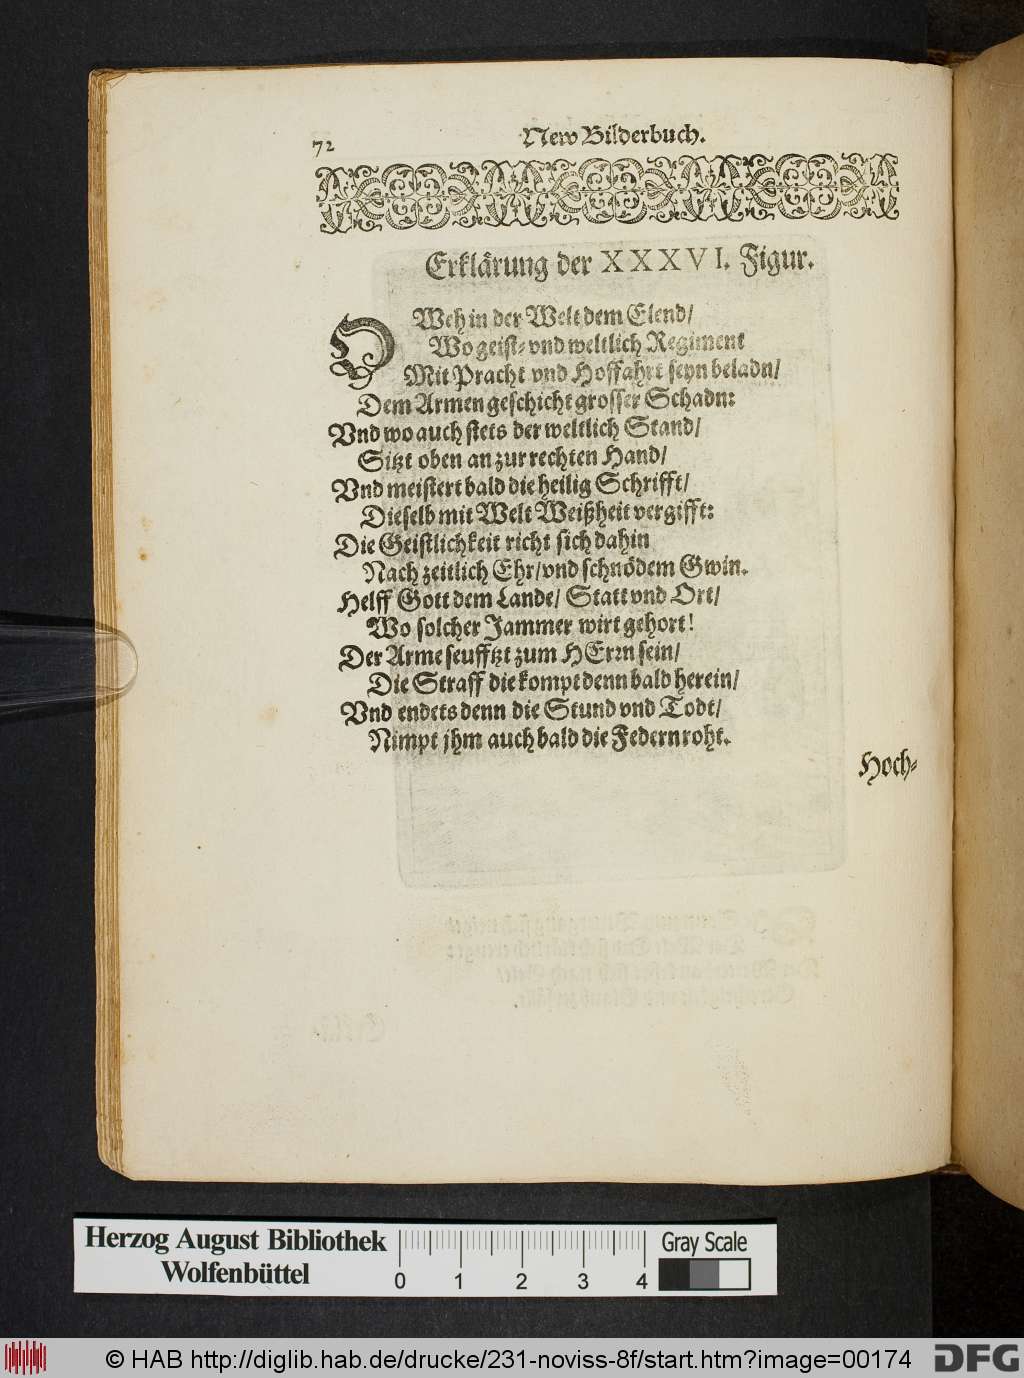 72
New Bilderbuch.
Erklärung der XXXVI. Figur.
O Weh in der Welt dem Elend/
Wo geist- vnd weltlich Regiment
Mit Pracht vnd Hoffahrt seyn beladn/
Dem Armen geschicht grosser Schadn:
Vnd wo auch stets der weltlich Stand/
Sitzt oben an zur rechten Hand/
Vnd meistert bald die heilig Schrifft/
Dieselb mit Welt Weißheit vergifft:
Die Geistlichkeit richt sich dahin
Nach zeitlich Ehr/ vnd schnödem Gwin.
Helff Gott dem Lande/ Statt vnd Ort/
Wo solcher Jammer wirt gehort!
Der Arme seufftzt zum HErrn sein/
Die Straff die kompt denn bald herein/
Vnd endets denn die Stund vnd Todt/
Nimpt jhm auch bald die Federn roht.
Hoch-
Herzog August Bibliothek
Wolfenbüttel
0 1 2 3 4
Gray Scale
© HAB http://diglib.hab.de/drucke/231-noviss-8f/start.htm?image=00174
DFG